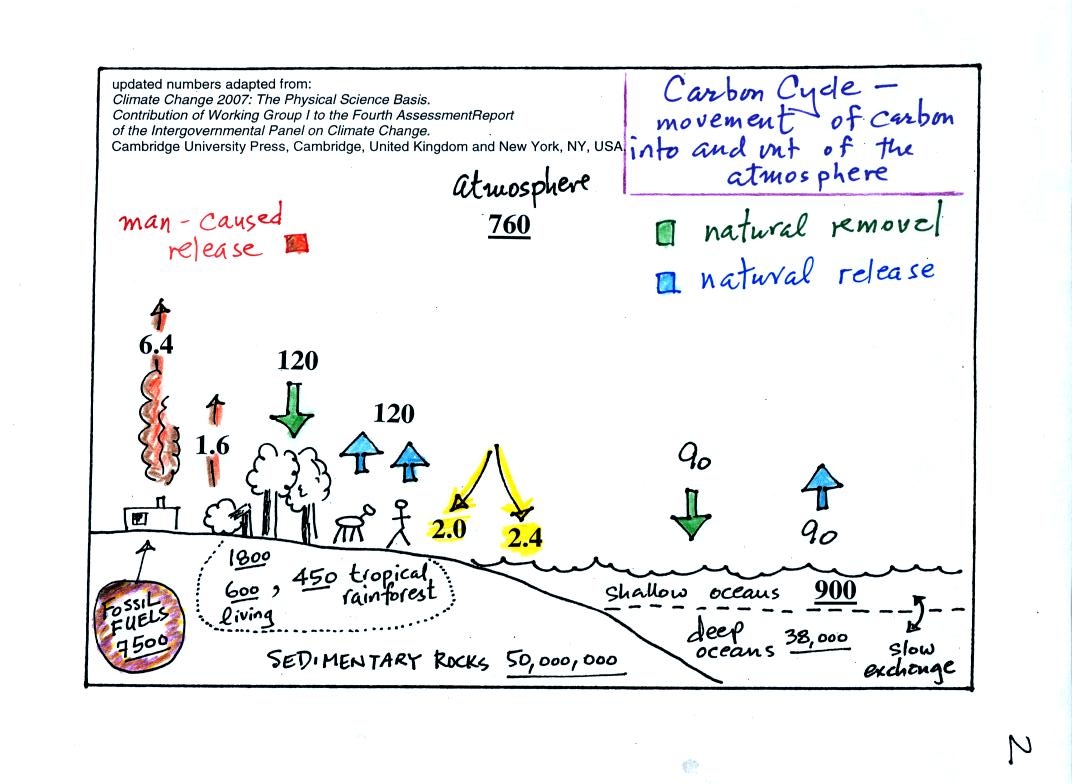 updated numbers adapted from:
Climate Change 2007: The Physical Science Basis.
Contribution of Working Group I to the Fourth AssessmentReport
of the Intergovernmental Panel on Climate Change.
Cambridge University Press, Cambridge, United Kingdom and New York, NY, USA
Carbon Cycle —
movement of carbon
into and out of the
atmosphere
atmosphere
760
man - caused
release
natural removal
natural release
6.4
1.6
120
120
2.0
2.4
90
90
FOSSIL
FUELS
7500
1800
600, 450 tropical
rainforest
living
shallow oceans 900
deep
oceans 38,000
slow
exchange
SEDIMENTARY ROCKS 50,000,000
2